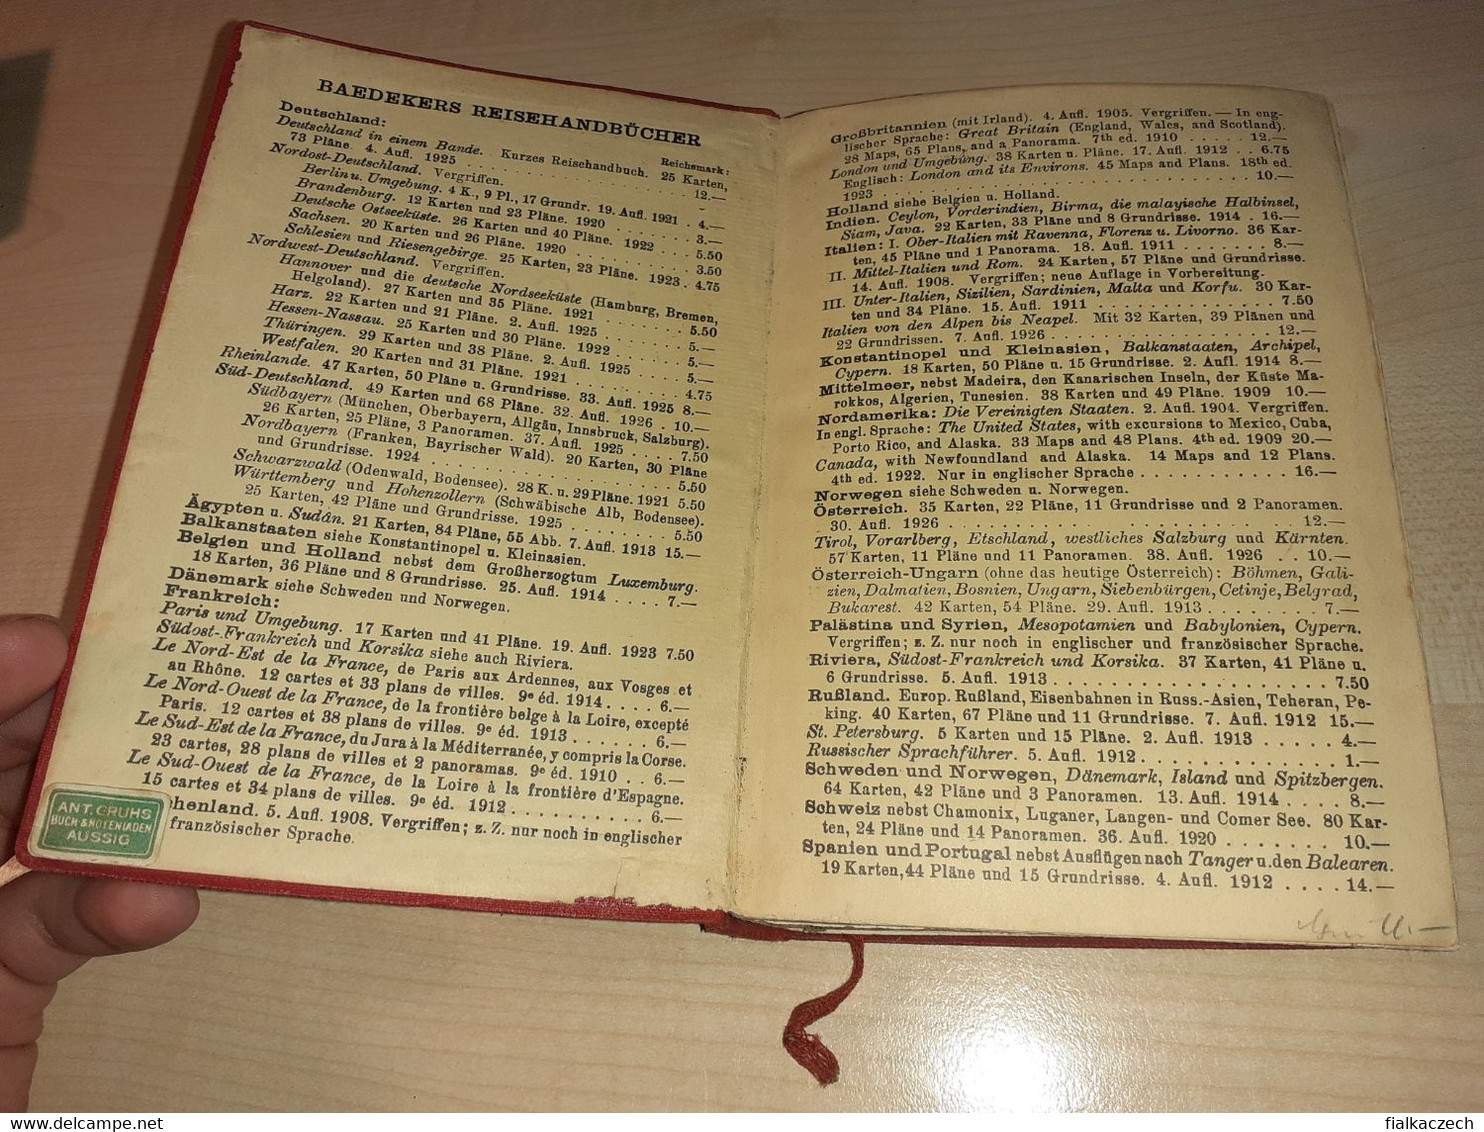 BAEDEKERS REISEHANDBÜCHER
Deutschland:
Reichsmark:
Deutschland in einem Bande. Kurzes Reisehandbuch. 25 Karten,
73 Pläne. 4. Aufl. 1925 . . . . . . . . . . . . . . . . 12.—
Nordost-Deutschland. Vergriffen.
Berlin u. Umgebung. 4 K., 9 Pl., 17 Grundr. 19. Aufl. 1921 . 4.—
Brandenburg. 12 Karten und 23 Pläne. 1920 . . . . . . . 3.—
Deutsche Ostseeküste. 26 Karten und 40 Pläne. 1922 . . . . 5.50
Sachsen. 20 Karten und 26 Pläne. 1920 . . . . . . . . . 3.50
Schlesien und Riesengebirge. 25 Karten, 23 Pläne. 1923 . 4.75
Nordwest-Deutschland. Vergriffen.
Hannover und die deutsche Nordseeküste (Hamburg, Bremen,
Helgoland). 27 Karten und 35 Pläne. 1921 . . . . . . . 5.50
Harz. 22 Karten und 21 Pläne. 2. Aufl. 1925 . . . . . . 5.—
Hessen-Nassau. 25 Karten und 30 Pläne. 1922 . . . . . . 5.—
Thüringen. 29 Karten und 38 Pläne. 2. Aufl. 1925 . . . . 5.—
Westfalen. 20 Karten und 31 Pläne. 1921 . . . . . . . . 4.75
Rheinlande. 47 Karten, 50 Pläne u. Grundrisse. 33. Aufl. 1925 8.—
Süd-Deutschland. 49 Karten und 68 Pläne. 32. Aufl. 1926 . 10.—
Südbayern (München, Oberbayern, Allgäu, Innsbruck, Salzburg).
26 Karten, 25 Pläne, 3 Panoramen. 37. Aufl. 1925 . . . . 7.50
Nordbayern (Franken, Bayrischer Wald). 20 Karten, 30 Pläne
und Grundrisse. 1924 . . . . . . . . . . . . . . . . . 5.50
Schwarzwald (Odenwald, Bodensee). 28 K. u. 29 Pläne. 1921 5.50
Württemberg und Hohenzollern (Schwäbische Alb, Bodensee).
25 Karten, 42 Pläne und Grundrisse. 1925 . . . . . . . 5.50
Ägypten u. Sudân. 21 Karten, 84 Pläne, 55 Abb. 7. Aufl. 1913 15.—
Balkanstaaten siehe Konstantinopel u. Kleinasien.
Belgien und Holland nebst dem Großherzogtum Luxemburg.
18 Karten, 36 Pläne und 8 Grundrisse. 25. Aufl. 1914 . . . . 7.—
Dänemark siehe Schweden und Norwegen.
Frankreich:
Paris und Umgebung. 17 Karten und 41 Pläne. 19. Aufl. 1923 7.50
Südost-Frankreich und Korsika siehe auch Riviera.
Le Nord-Est de la France, de Paris aux Ardennes, aux Vosges et
au Rhône. 12 cartes et 33 plans de villes. 9e éd. 1914 . . . . 6.—
Le Nord-Ouest de la France, de la frontière belge à la Loire, excepté
Paris. 12 cartes et 38 plans de villes. 9e éd. 1913 . . . . . . 6.—
Le Sud-Est de la France, du Jura à la Méditerranée, y compris la Corse.
23 cartes, 28 plans de villes et 2 panoramas. 9e éd. 1910 . . 6.—
Le Sud-Ouest de la France, de la Loire à la frontière d'Espagne.
15 cartes et 34 plans de villes. 9e éd. 1912 . . . . . . . . . 6.—
chenland. 5. Aufl. 1908. Vergriffen; z. Z. nur noch in englischer
französischer Sprache.
ANT. GRUHS
BUCH- & NOTENLADEN
AUSSIG
Großbritannien (mit Irland). 4. Aufl. 1905. Vergriffen. — In eng-
lischer Sprache: Great Britain (England, Wales, and Scotland).
28 Maps, 65 Plans, and a Panorama. 7th ed. 1910 . . . . . 12.—
London und Umgebung. 38 Karten u. Pläne. 17. Aufl. 1912 . . 6.75
Englisch: London and its Environs. 45 Maps and Plans. 18th ed.
1923 . . . . . . . . . . . . . . . . . . . . . . . . . . 10.—
Holland siehe Belgien u. Holland.
Indien. Ceylon, Vorderindien, Birma, die malayische Halbinsel,
Siam, Java. 22 Karten, 33 Pläne und 8 Grundrisse. 1914 . 16.—
Italien: I. Ober-Italien mit Ravenna, Florenz u. Livorno. 36 Kar-
ten, 45 Pläne und 1 Panorama. 18. Aufl. 1911 . . . . . . . 8.—
II. Mittel-Italien und Rom. 24 Karten, 57 Pläne und Grundrisse.
14. Aufl. 1908. Vergriffen; neue Auflage in Vorbereitung.
III. Unter-Italien, Sizilien, Sardinien, Malta und Korfu. 30 Kar-
ten und 34 Pläne. 15. Aufl. 1911 . . . . . . . . . . . . . 7.50
Italien von den Alpen bis Neapel. Mit 32 Karten, 39 Plänen und
22 Grundrissen. 7. Aufl. 1926 . . . . . . . . . . . . . . 12.—
Konstantinopel und Kleinasien, Balkanstaaten, Archipel,
Cypern. 18 Karten, 50 Pläne u. 15 Grundrisse. 2. Aufl. 1914 8.—
Mittelmeer, nebst Madeira, den Kanarischen Inseln, der Küste Ma-
rokkos, Algerien, Tunesien. 38 Karten und 49 Pläne. 1909 10.—
Nordamerika: Die Vereinigten Staaten. 2. Aufl. 1904. Vergriffen.
In engl. Sprache: The United States, with excursions to Mexico, Cuba,
Porto Rico, and Alaska. 33 Maps and 48 Plans. 4th ed. 1909 20.—
Canada, with Newfoundland and Alaska. 14 Maps and 12 Plans.
4th ed. 1922. Nur in englischer Sprache . . . . . . . . . . 16.—
Norwegen siehe Schweden u. Norwegen.
Österreich. 35 Karten, 22 Pläne, 11 Grundrisse und 2 Panoramen.
30. Aufl. 1926 . . . . . . . . . . . . . . . . . . . . . 12.—
Tirol, Vorarlberg, Etschland, westliches Salzburg und Kärnten.
57 Karten, 11 Pläne und 11 Panoramen. 38. Aufl. 1926 . . 10.—
Österreich-Ungarn (ohne das heutige Österreich): Böhmen, Gali-
zien, Dalmatien, Bosnien, Ungarn, Siebenbürgen, Cetinje, Belgrad,
Bukarest. 42 Karten, 54 Pläne. 29. Aufl. 1913 . . . . . . . . 7.—
Palästina und Syrien, Mesopotamien und Babylonien, Cypern.
Vergriffen; z. Z. nur noch in englischer und französischer Sprache.
Riviera, Südost-Frankreich und Korsika. 37 Karten, 41 Pläne u.
6 Grundrisse. 5. Aufl. 1913 . . . . . . . . . . . . . . . . 7.50
Rußland. Europ. Rußland, Eisenbahnen in Russ.-Asien, Teheran, Pe-
king. 40 Karten, 67 Pläne und 11 Grundrisse. 7. Aufl. 1912 15.—
St. Petersburg. 5 Karten und 15 Pläne. 2. Aufl. 1913 . . . . . 4.—
Russischer Sprachführer. 5. Aufl. 1912 . . . . . . . . . . . . 1.—
Schweden und Norwegen, Dänemark, Island und Spitzbergen.
64 Karten, 42 Pläne und 3 Panoramen. 13. Aufl. 1914 . . . . 8.—
Schweiz nebst Chamonix, Luganer, Langen- und Comer See. 80 Kar-
ten, 24 Pläne und 14 Panoramen. 36. Aufl. 1920 . . . . . . . 10.—
Spanien und Portugal nebst Ausflügen nach Tanger u. den Balearen.
19 Karten, 44 Pläne und 15 Grundrisse. 4. Aufl. 1912 . . . . 14.—
fialkaczech